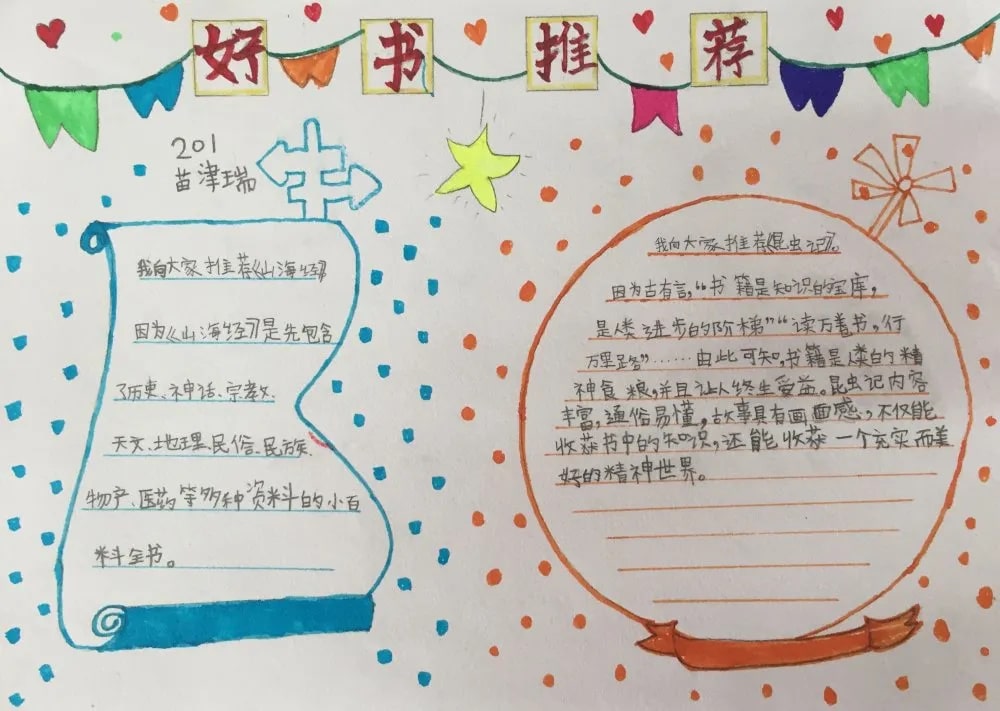 好书推荐
201
苗津瑞
我向大家推荐《山海经》
因为《山海经》是先包含
了历史、神话、宗教、
天文、地理、民俗、民族、
物产、医药等多种资料的小百
料全书。
我向大家推荐《昆虫记》。
因为古有言，“书籍是知识的宝库，
是人类进步的阶梯”“读万卷书，行
万里路”……由此可知，书籍是人类的精
神食粮，并且让人终生受益。昆虫记内容
丰富，通俗易懂，故事具有画面感，不仅能
收获书中的知识，还能收获一个充实而美
好的精神世界。